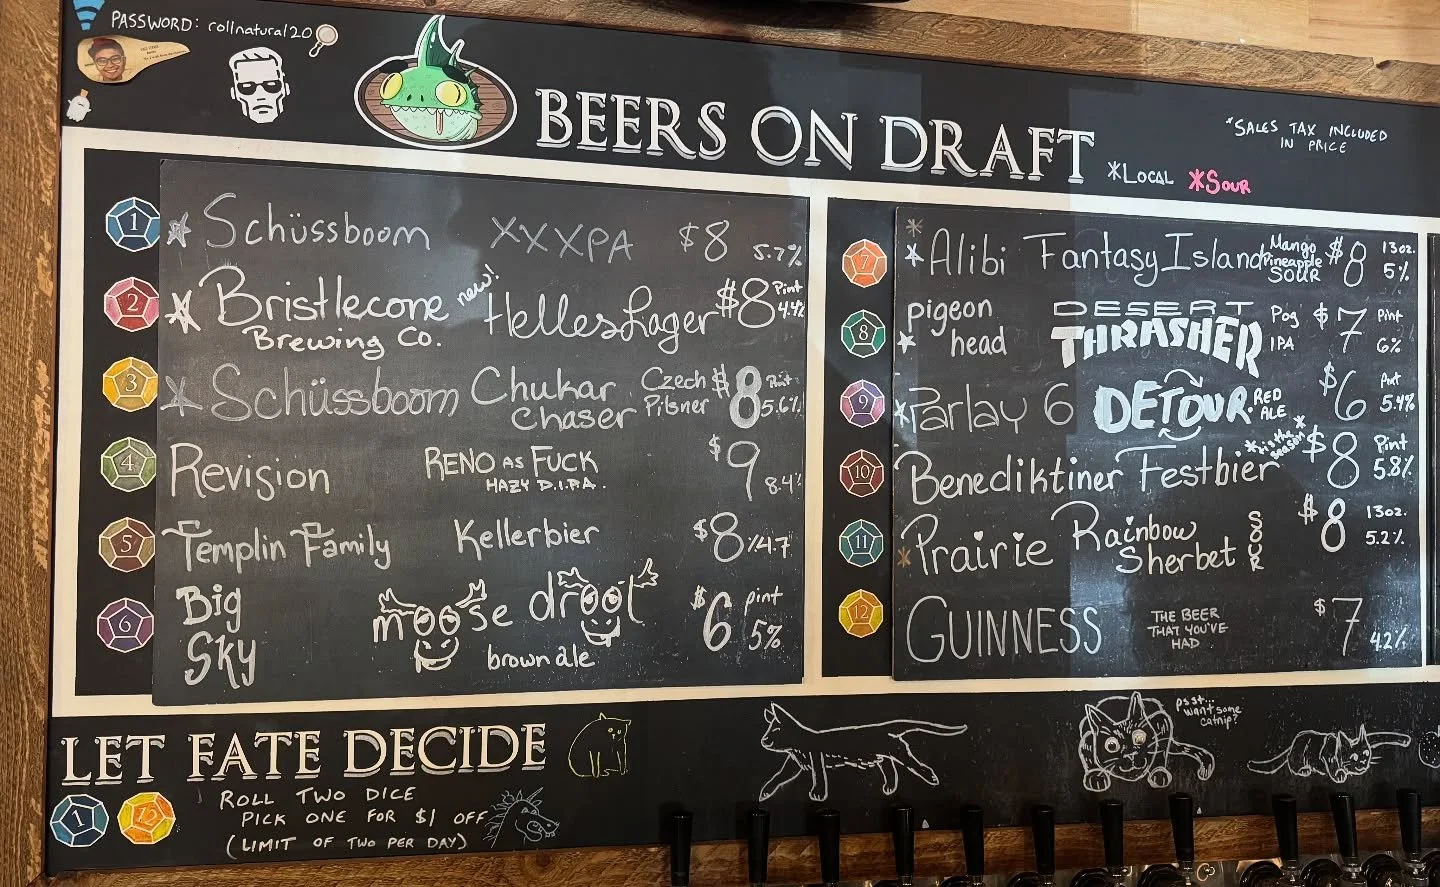 PASSWORD: rollnatural20
BEERS ON DRAFT
*LOCAL *SOUR
*SALES TAX INCLUDED
IN PRICE
1 * Schüssboom XXXPA $8 5.7%
2 * Bristlecone Brewing Co. new! Helles Lager $8 Pint 4.4%
3 * Schüssboom Chukar Chaser Czech Pilsner $8 Pint 5.6%
4 Revision RENO AS FUCK HAZY D.I.P.A. $9 8.4%
5 Templin Family Kellerbier $8 %4.7
6 Big Sky moose drool brown ale $6 pint 5%
7 * * Alibi Fantasy Island Mango Pineapple SOUR $8 13oz. 5%
8 * pigeon head DESERT THRASHER Pog IPA $7 Pint 6%
9 * Parlay 6 DETOUR RED ALE $6 Pint 5.4%
10 Benediktiner Festbier *tis the season* $8 Pint 5.8%
11 * Prairie Rainbow Sherbet SOUR $8 13oz. 5.2%
12 GUINNESS THE BEER THAT YOU'VE HAD $7 4.2%
LET FATE DECIDE
1 12
ROLL TWO DICE
PICK ONE FOR $1 OFF
(LIMIT OF TWO PER DAY)
psst...
want some
catnip?